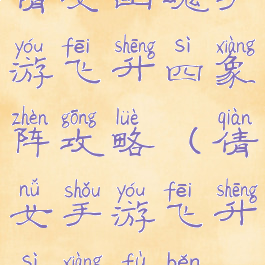 yóu fēi shēng sì xiàng
游飞升四象
zhèn gōng lüè qiàn
阵攻略（倩
nǚ shǒu yóu fēi shēng
女手游飞升
sì xiàng fù běn